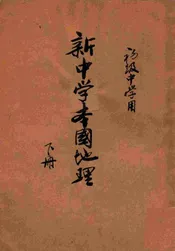 初級中学用
新中学本國地理
下册